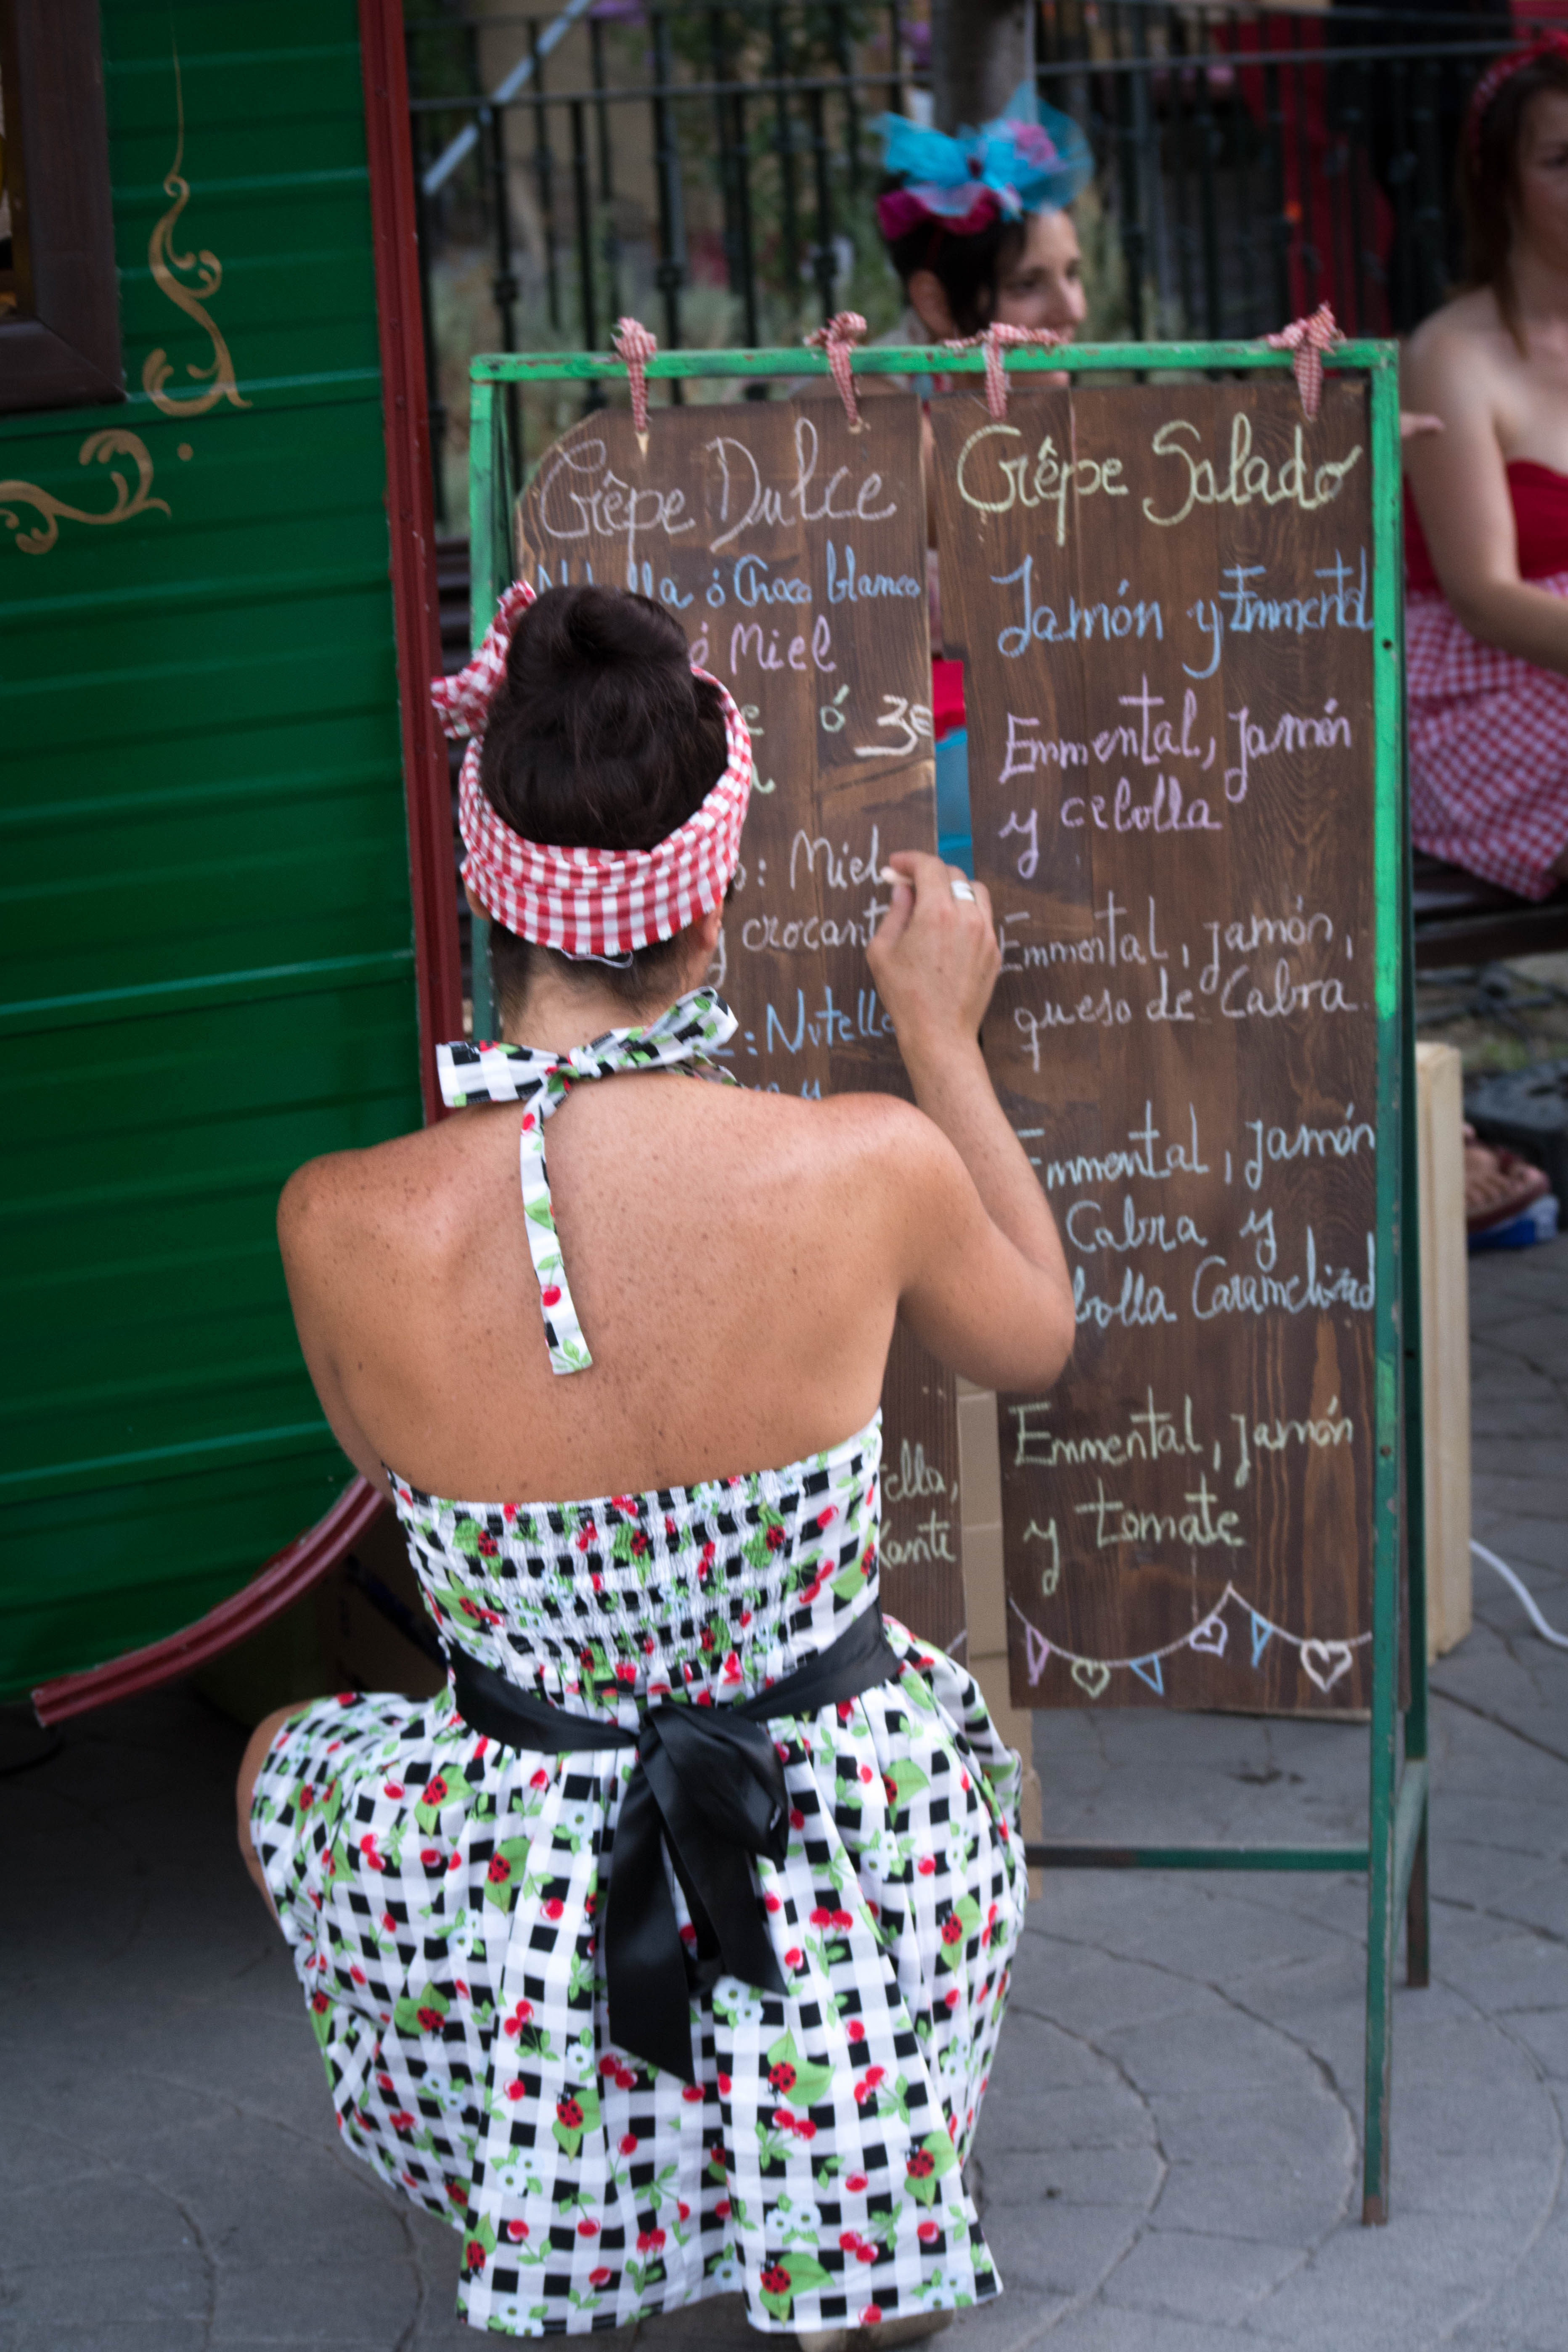 Crêpe Dulce
ó Choco blanco
ó Miel
ó 3€
: Miel
y crocant
: Nutella
y
Crêpe Salado
Jamón y Emmental
Emmental, jamón
y cebolla
Emmental, jamón,
queso de Cabra
Emmental, jamón
Cabra y
Caramelizad
Emmental, jamón
y tomate